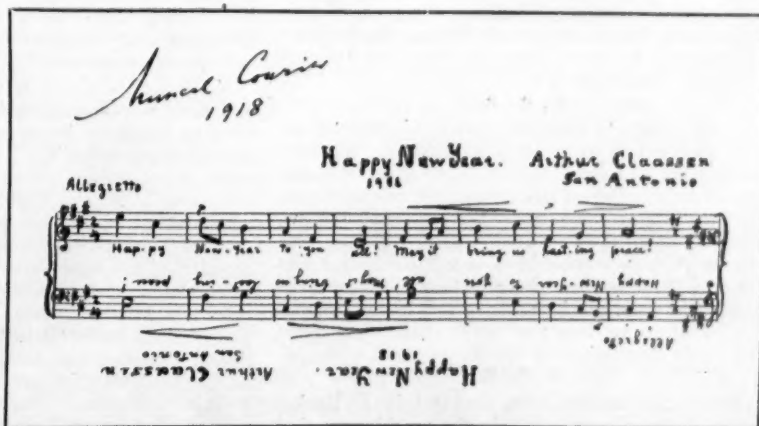 Musical Courier
1918
Happy New Year. Arthur Claassen
San Antonio
Allegretto
Hap-py New-Year to you all! May it bring us last-ing peace!
Happy New-Year to you all, May it bring us last-ing peace!
Allegretto
Happy New Year. Arthur Claassen
1918 San Antonio